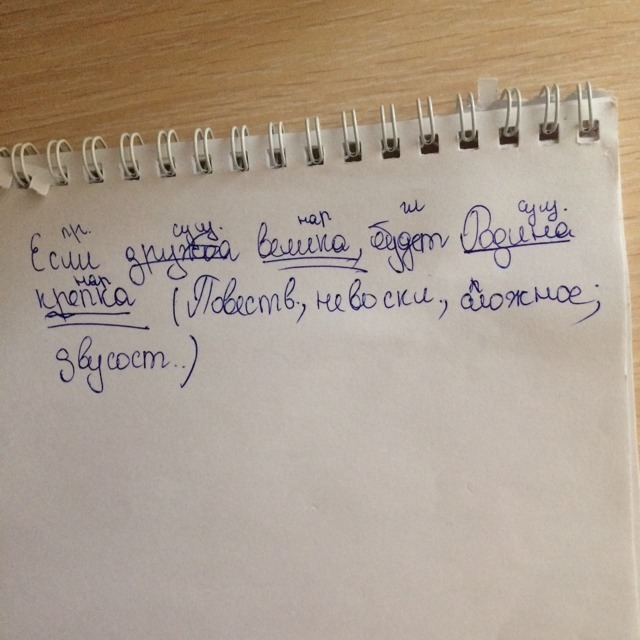 пр. сущ. нар гл сущ.
Если дружба велика, будет Родина
нар
крепка (Повеств., невоскл., сложное;
звусост..)